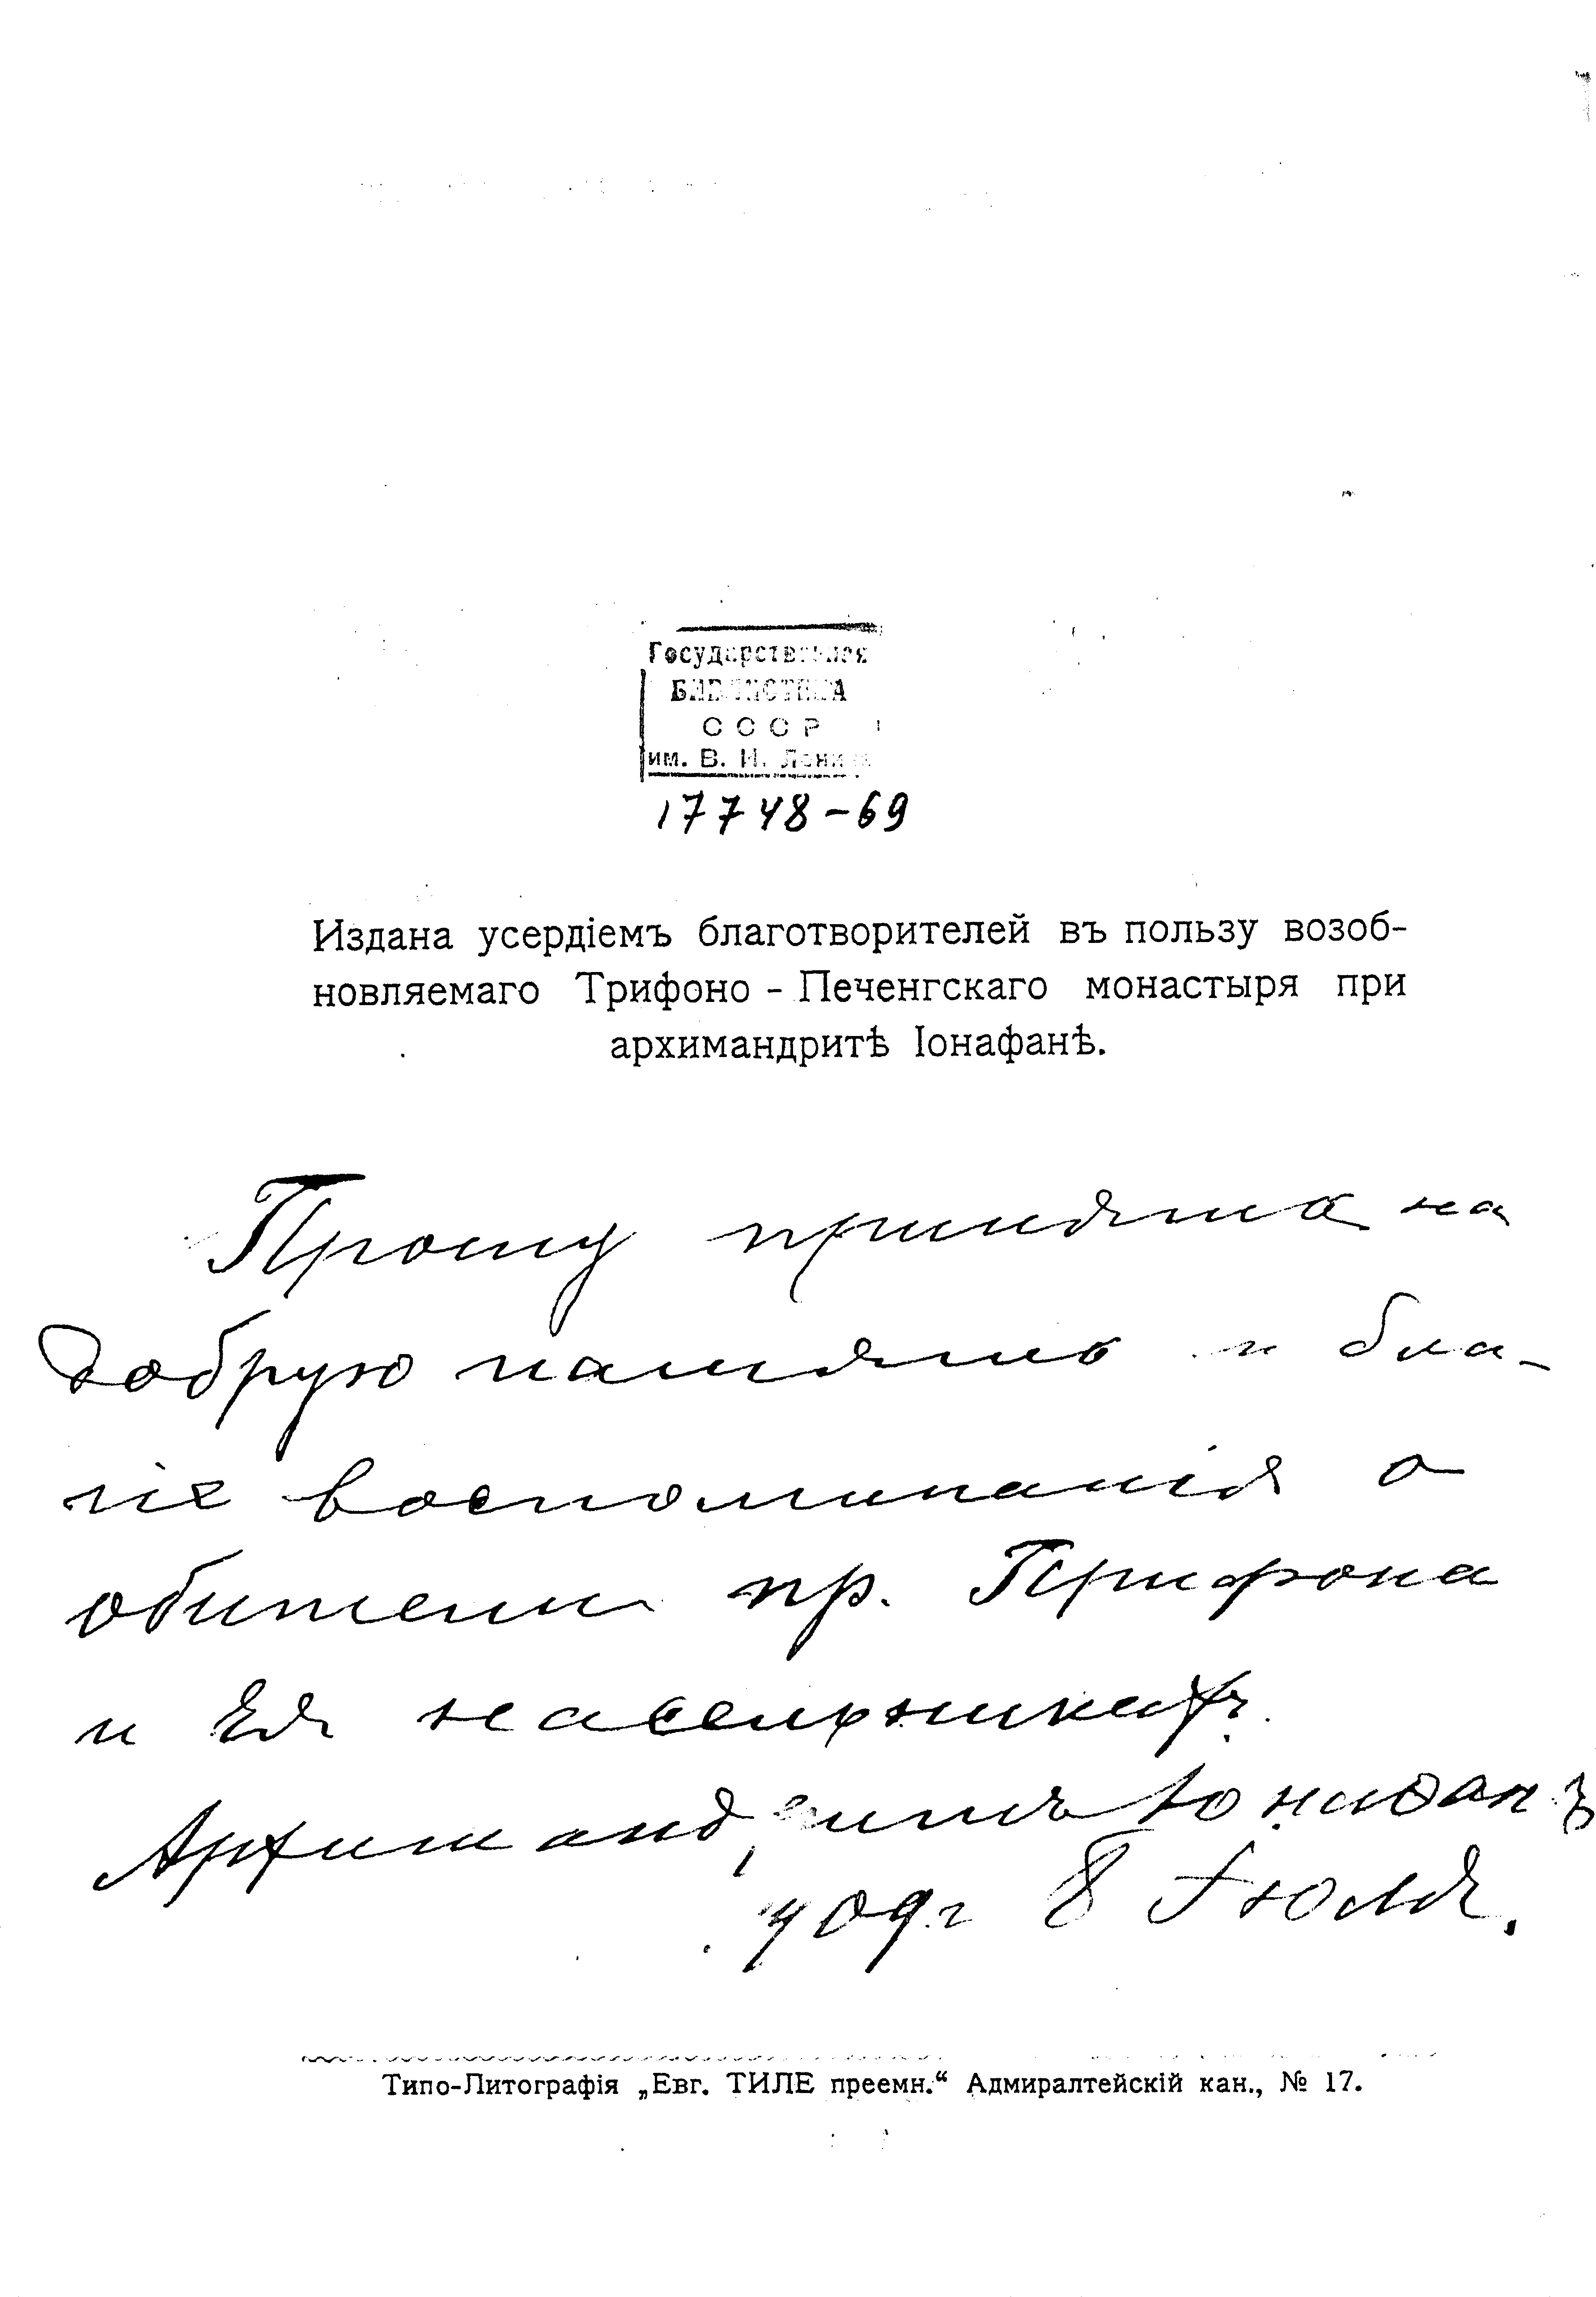 Государственная
БИБЛИОТЕКА
СССР
им. В. И. Ленина
17748-69
Издана усердіемъ благотворителей въ пользу возоб-
новляемаго Трифоно - Печенгскаго монастыря при
архимандритѣ Іонафанѣ.
Прошу принять на
добрую память и бла-
гіе воспоминанія о
обители пр. Трифона
и Ея насельникахъ.
Архимандритъ Іонафанъ
909 г 8 Іюля.
Типо-Литографія „Евг. ТИЛЕ преемн.“ Адмиралтейскій кан., № 17.